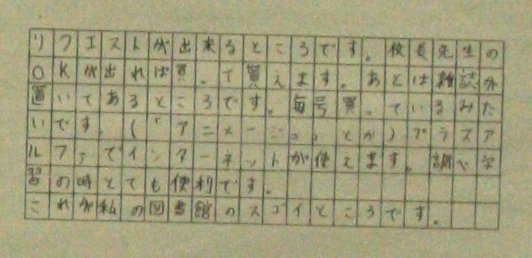 リクエストが出来るところです。校長先生の
OKが出れば買って買えます。あとは雑誌が
置いてあるところです。毎号買っているみた
いです。(「アニメージュ」とか)プラスア
ルファでインターネットが使えます。調べ学
習の時とても便利です。
これが私の図書館のスゴイところです。